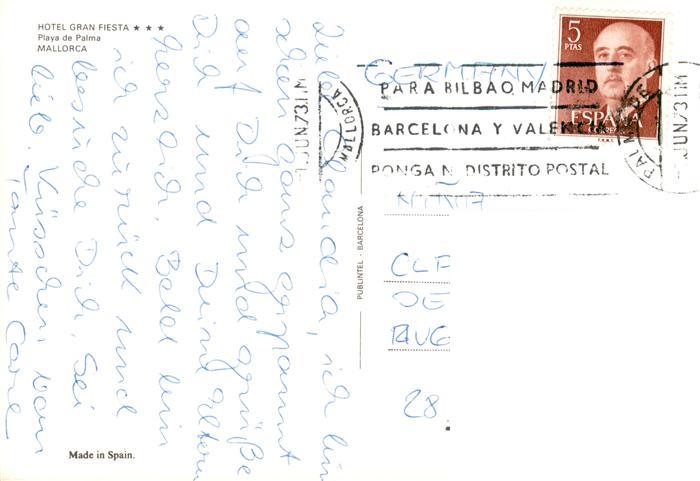 HOTEL GRAN FIESTA ★ ★ ★
Playa de Palma
MALLORCA
Liebe Claudia, ich bin
schon ganz gespannt
auf Dich und grüße
Dich und Deine Eltern
herzlich. Bald bin
ich zurück und
besuche Dich. Sei
lieb. Küsschen von
Tante
Made in Spain.
PUBLINTEL - BARCELONA
5
PTAS
ESPAÑA
CORREOS
MALLORCA
JUN 73 11M
PARA BILBAO, MADRID
BARCELONA Y VALENC
PONGA Nº DISTRITO POSTAL
PALMA DE
JUN 73 11M
GERMANY
CLF
DE
AUG
28.